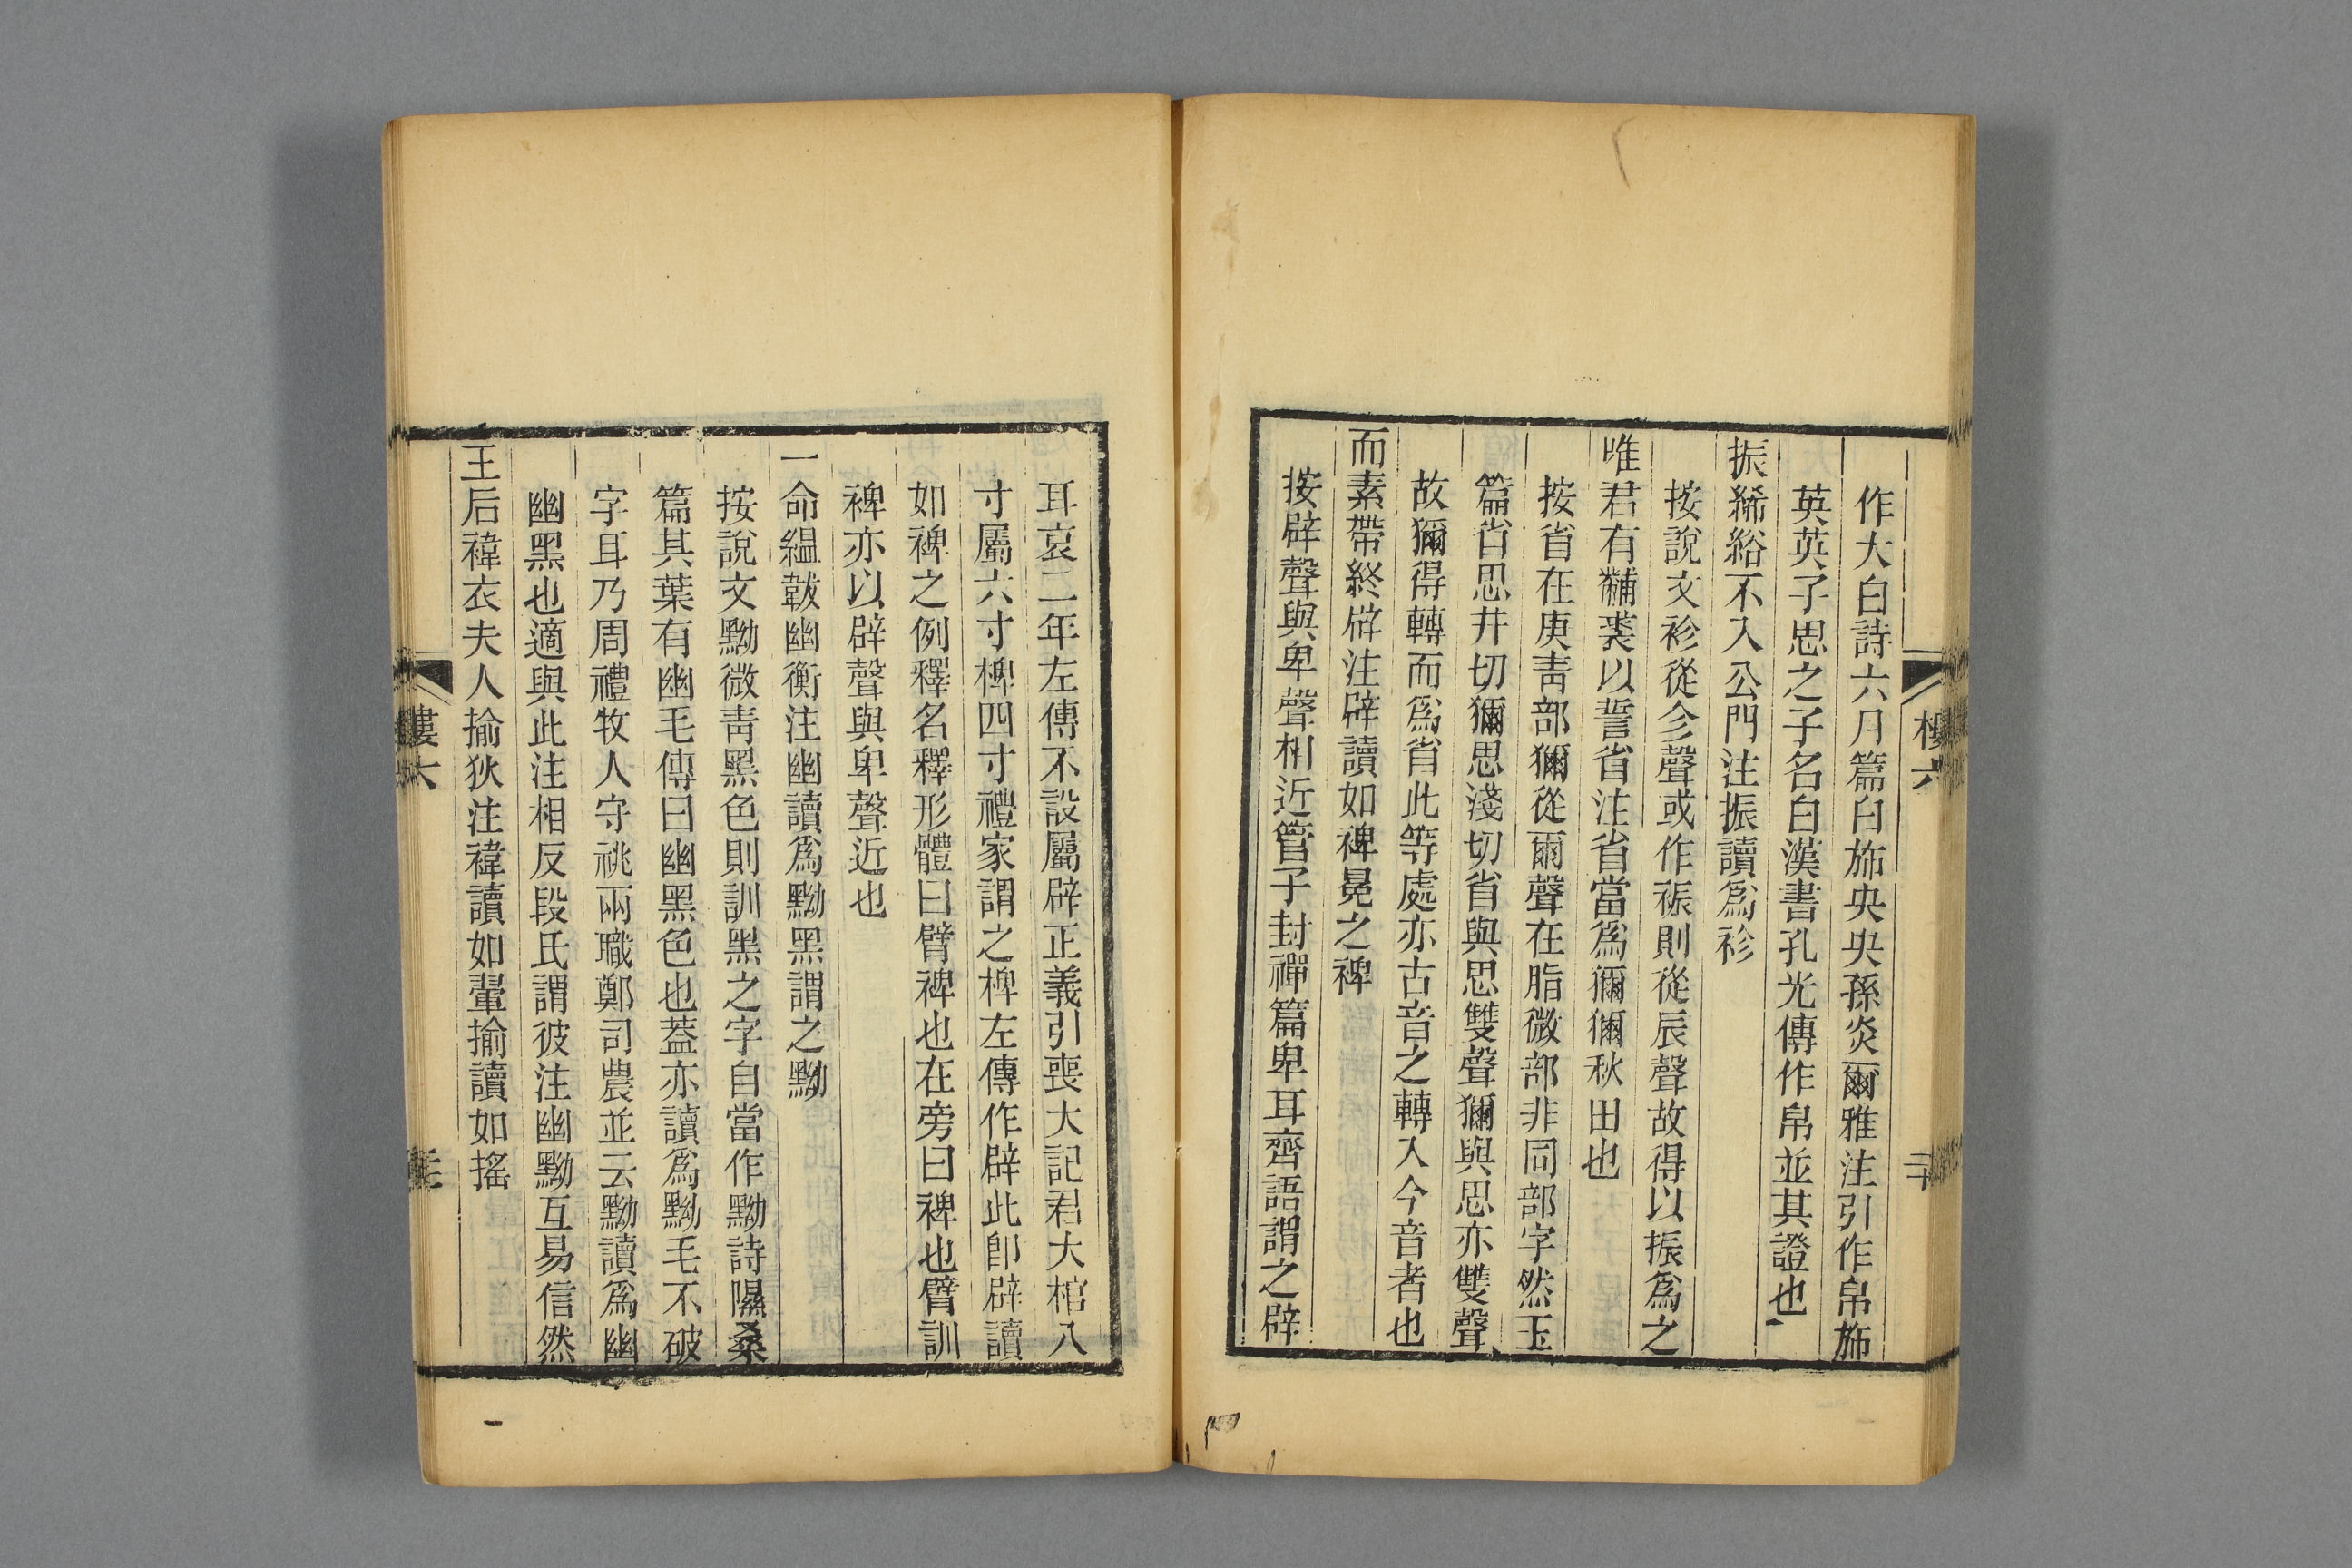 作大白詩六月篇白斾央央孫炎爾雅注引作帛斾
英英子思之子名白漢書孔光傳作帛並其證也
振絺綌不入公門注振讀爲袗
按說文袗從㐱聲或作裖則從辰聲故得以振爲之
唯君有黼裘以誓省注省當爲獮獮秋田也
按省在庚靑部獮從爾聲在脂微部非同部字然玉
篇省思井切獮思淺切省與思雙聲獮與思亦雙聲
故獮得轉而爲省此等處亦古音之轉入今音者也
而素帶終辟注辟讀如裨冕之裨
按辟聲與卑聲相近管子封禪篇卑耳齊語謂之辟
樓六
二十
耳哀二年左傳不設屬辟正義引喪大記君大棺八
寸屬六寸椑四寸禮家謂之椑左傳作辟此卽辟讀
如裨之例釋名釋形體曰臂裨也在旁曰裨也臂訓
裨亦以辟聲與卑聲近也
一命縕韍幽衡注幽讀爲黝黑謂之黝
按說文黝微靑黑色則訓黑之字自當作黝詩隰桑
篇其葉有幽毛傳曰幽黑色也蓋亦讀爲黝毛不破
字耳乃周禮牧人守祧兩職鄭司農並云黝讀爲幽
幽黑也適與此注相反段氏謂彼注幽黝互易信然
王后褘衣夫人揄狄注褘讀如翬揄讀如搖
樓六